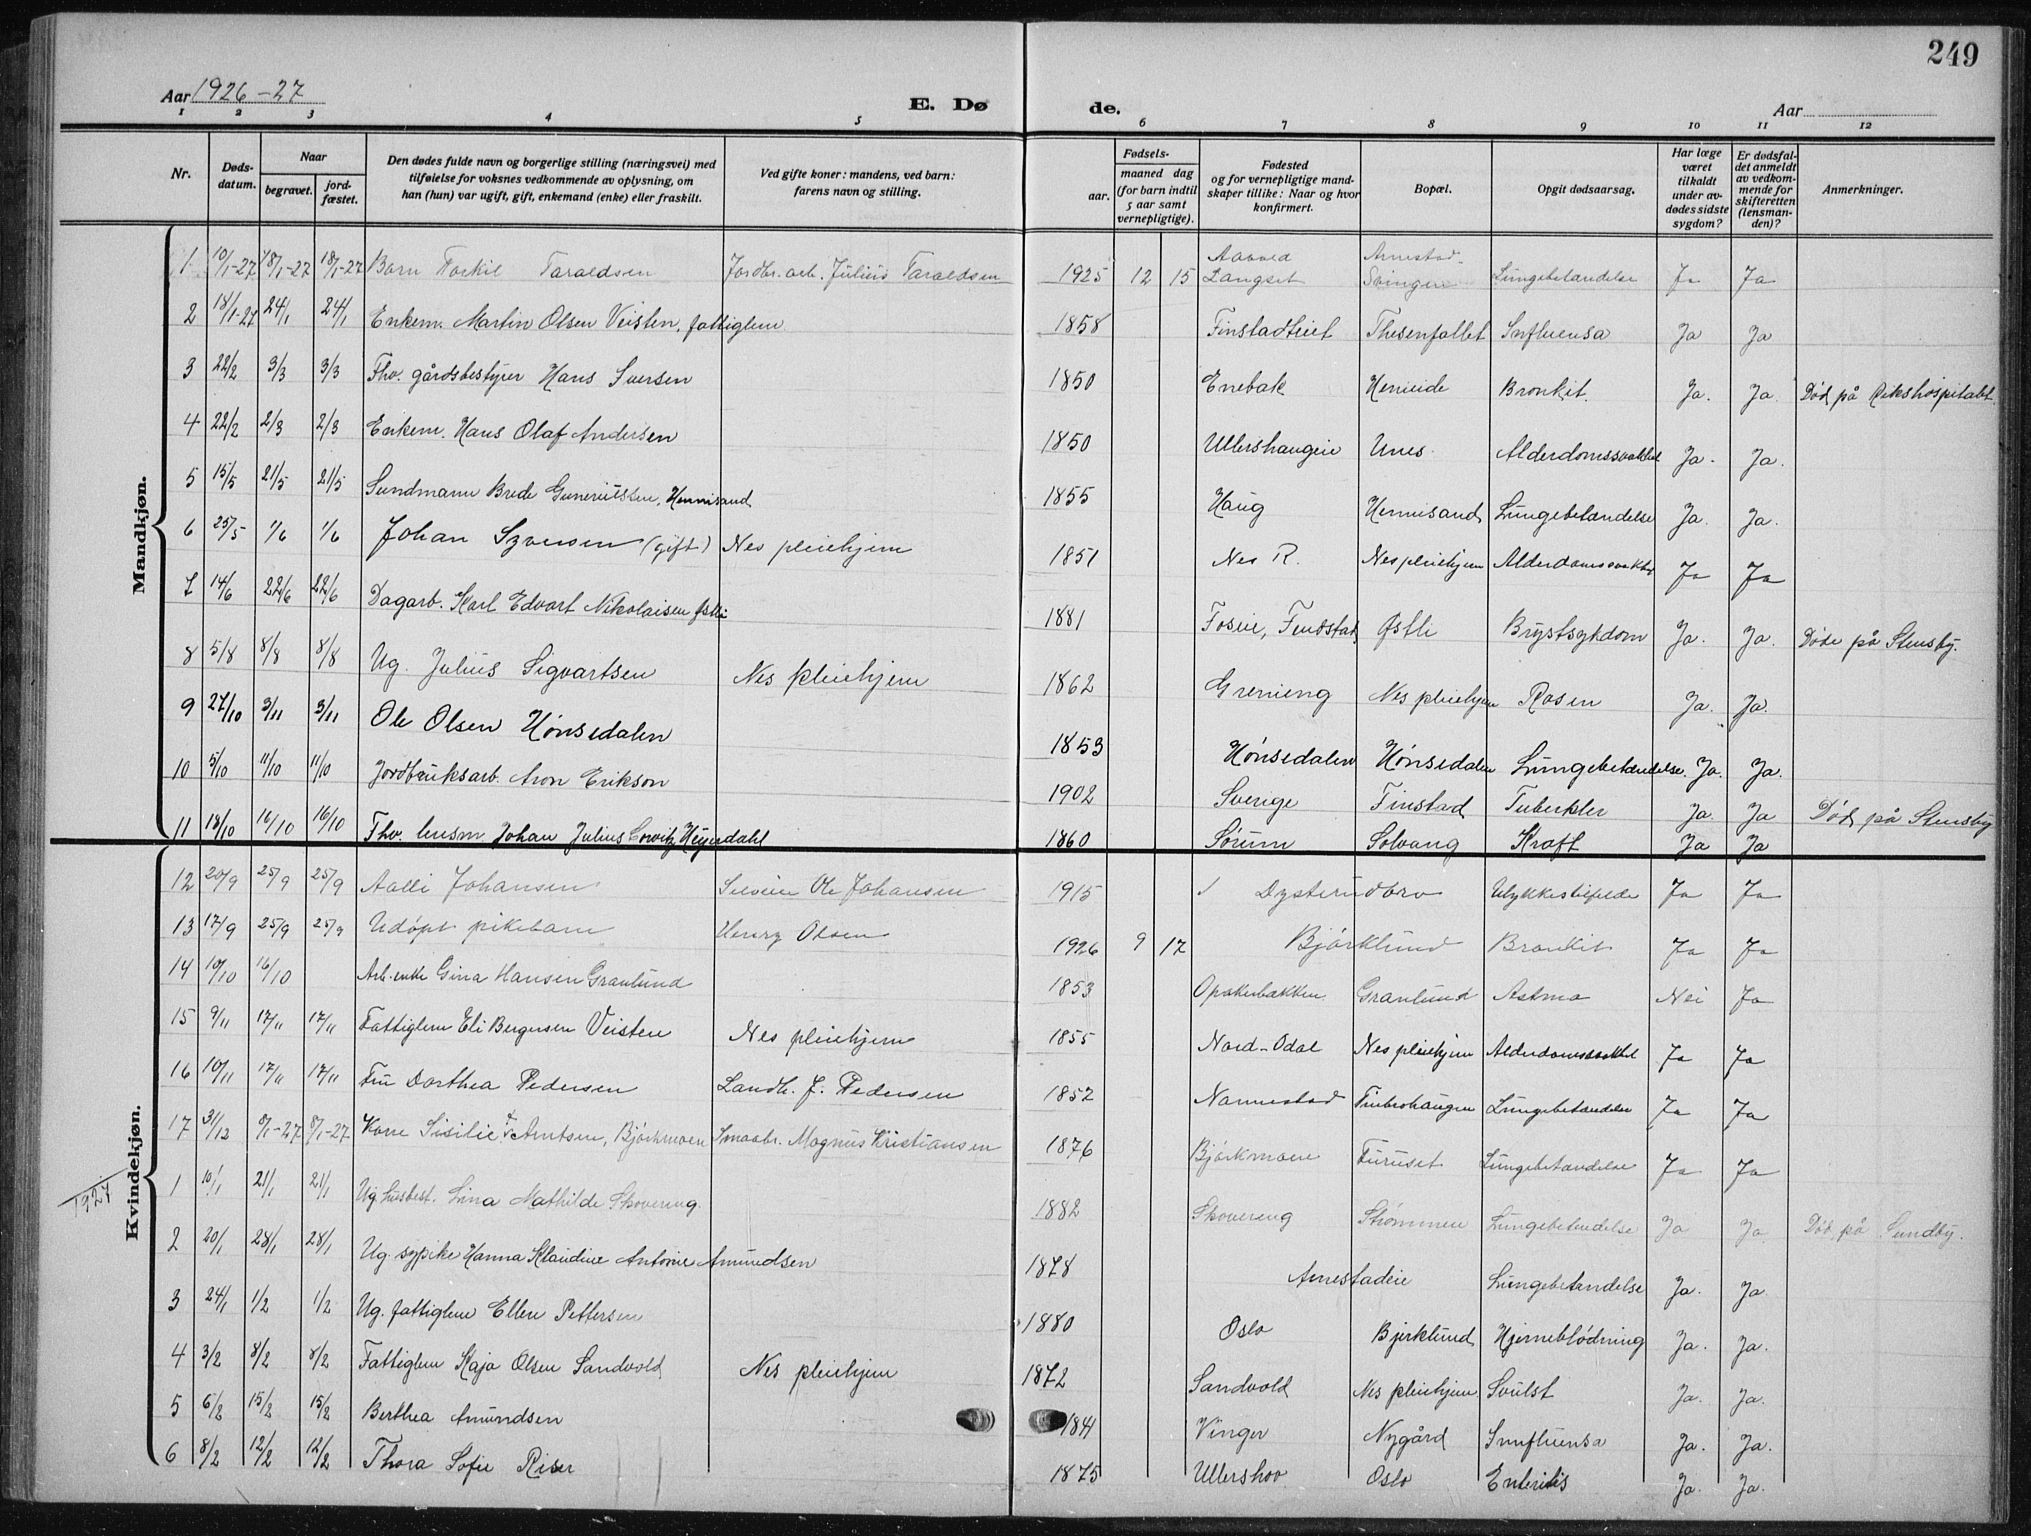 249
Aar 1926-27
E. Dø
de.
Aar
1 2 3 4 5 6 7 8 9 10 11 12
Nr.
Døds-
datum.
Naar
begravet.
jord-
fæstet.
Den dødes fulde navn og borgerlige stilling (næringsvei) med
tilføielse for voksnes vedkommende av oplysning, om
han (hun) var ugift, gift, enkemand (enke) eller fraskilt.
Ved gifte koner: mandens, ved barn:
farens navn og stilling.
Fødsels-
aar.
maaned dag
(for barn indtil
5 aar samt
vernepligtige).
Fødested
og for vernepligtige mand-
skaper tillike: Naar og hvor
konfirmert.
Bopæl.
Opgit dødsaarsag.
Har læge
været
tilkaldt
under av-
dødes sidste
sygdom?
Er dødsfal-
det anmeldt
av vedkom-
mende for
skifteretten
(lensman-
den)?
Anmerkninger.
Mandkjøn.
1 10/1-27 18/1-27 18/1-27 Barn Torkil Taraldsen Jordbr.arb. Julius Taraldsen 1925 12 15 Langset Svingen Lungebetændelse Ja Ja
2 18/1-27 24/1 24/1 Enkem. Martin Olsen Veisten, fattiglem 1858 Finstadteiet Thesenfallet Influensa Ja Ja
3 22/2 3/3 3/3 Fhv. gårdsbestyrer Hans Iversen 1850 Enebak Bronkit. Ja. Ja. Død på Rikshospitalet.
4 22/2 2/3 2/3 Enkem. Hans Olaf Andersen 1850 Ullershaugeie Unes. Alderdomssvakhet Ja. Ja.
5 15/5 21/5 21/5 Sundmann Brede Guneriussen, Hennisand 1855 Haug Hennisand Lungebetændelse Ja. Ja.
6 25/5 1/6 1/6 Johan Syversen (gift) Nes pleiehjem 1851 Nes R. Nes pleiehjem Alderdomssvakhet Ja Ja
7 14/6 22/6 22/6 Dagarb. Karl Edvart Nikolaisen Østli 1881 Foseie, Fendstad Østli Brystsykdom Ja. Ja. Døde på Stensby.
8 5/8 8/8 8/8 Ug. Julius Sigvartsen Nes pleiehjem 1862 Grenieng Nes pleiehjem Rosen Ja. Ja.
9 27/10 3/11 3/11 Ole Olsen Hønsedalen 1853 Hønsedalen Hønsedalen Lungebetændelse. Ja. Ja.
10 5/10 11/10 11/10 Jordbruksarb. Aron Erikson 1902 Sverige Finstad Tuberkler Ja Ja Død på Stensby
11 13/10 16/10 16/10 Fhv. lensm. Johan Julius Corvitz Heyerdahl 1860 Sørum Solvang Kræft Ja Ja
Kvindekjøn.
12 20/9 25/9 25/9 Aalli Johansen Ole Johansen 1915 Dysterudbro Ulykkestilfelde Ja Ja
13 17/9 25/9 25/9 Udøpt pikebarn Henry Olsen 1926 9 17 Bjørklund Bronkit Ja Ja
14 10/10 16/10 Arb.enke Gina Hansen Granlund 1853 Opakerbakken Granlund Astma Nei Ja
15 9/11 17/11 17/11 Fattiglem Eli Bergersen Veisten Nes pleiehjem 1855 Nord-Odal Nes pleiehjem Alderdomssvakhet Ja Ja
16 10/11 17/11 17/11 Fru Dorthea Pedersen Landh. J. Pedersen 1852 Nannestad Timbrohaugen Lungebetændelse Ja Ja
17 31/12 8/1-27 8/1-27 Kone Sisilie Arntsen, Bjørkmoen Smaabr. Magnus Kristiansen 1876 Bjørkmoen Furuset Lungebetændelse Ja Ja
1927
1 10/1 21/1 21/1 Ug. husbest. Lina Mathilde Skovereng. 1882 Skovereng Strømmen Lungebetændelse Ja Ja Død på Sundby.
2 20/1 28/1 28/1 Ug. sypike Hanna Klaudine Antonie Amundsen 1878 Arnestadeie Lungebetændelse Ja. Ja
3 24/1 1/2 1/2 Ug. fattiglem Ellen Pettersen 1880 Oslo Bjerklund Hjerneblødning Ja. Ja.
4 3/2 8/2 8/2 Fattiglem Kaja Olsen Sandvold Nes pleiehjem 1872 Sandvold Nes pleiehjem Svulst Ja. Ja.
5 6/2 15/2 15/2 Berthea Amundsen 1841 Vinger Nygård Innfluensa Ja. Ja.
6 8/2 12/2 12/2 Thora Sofie Riser 1875 Ullershov Oslo Enteritis Ja. Ja.